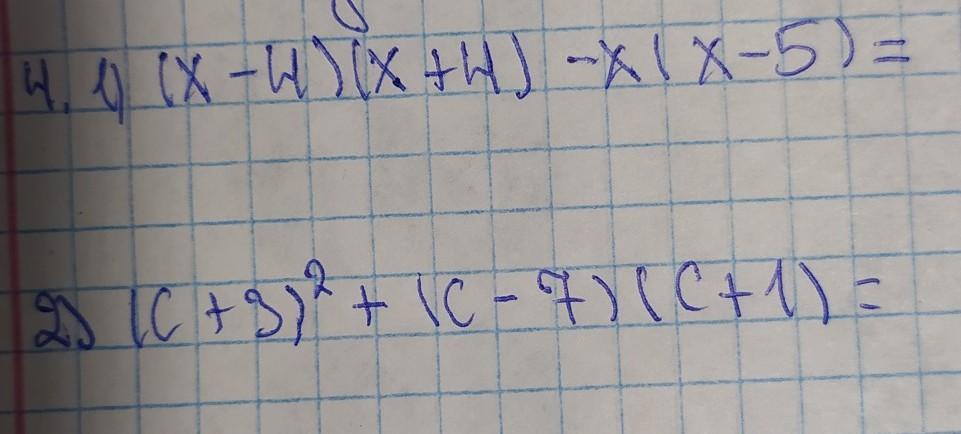 4. 1) (x-4)(x+4) -x(x-5)=
2) (c+3)²+(c-7)(c+1)=